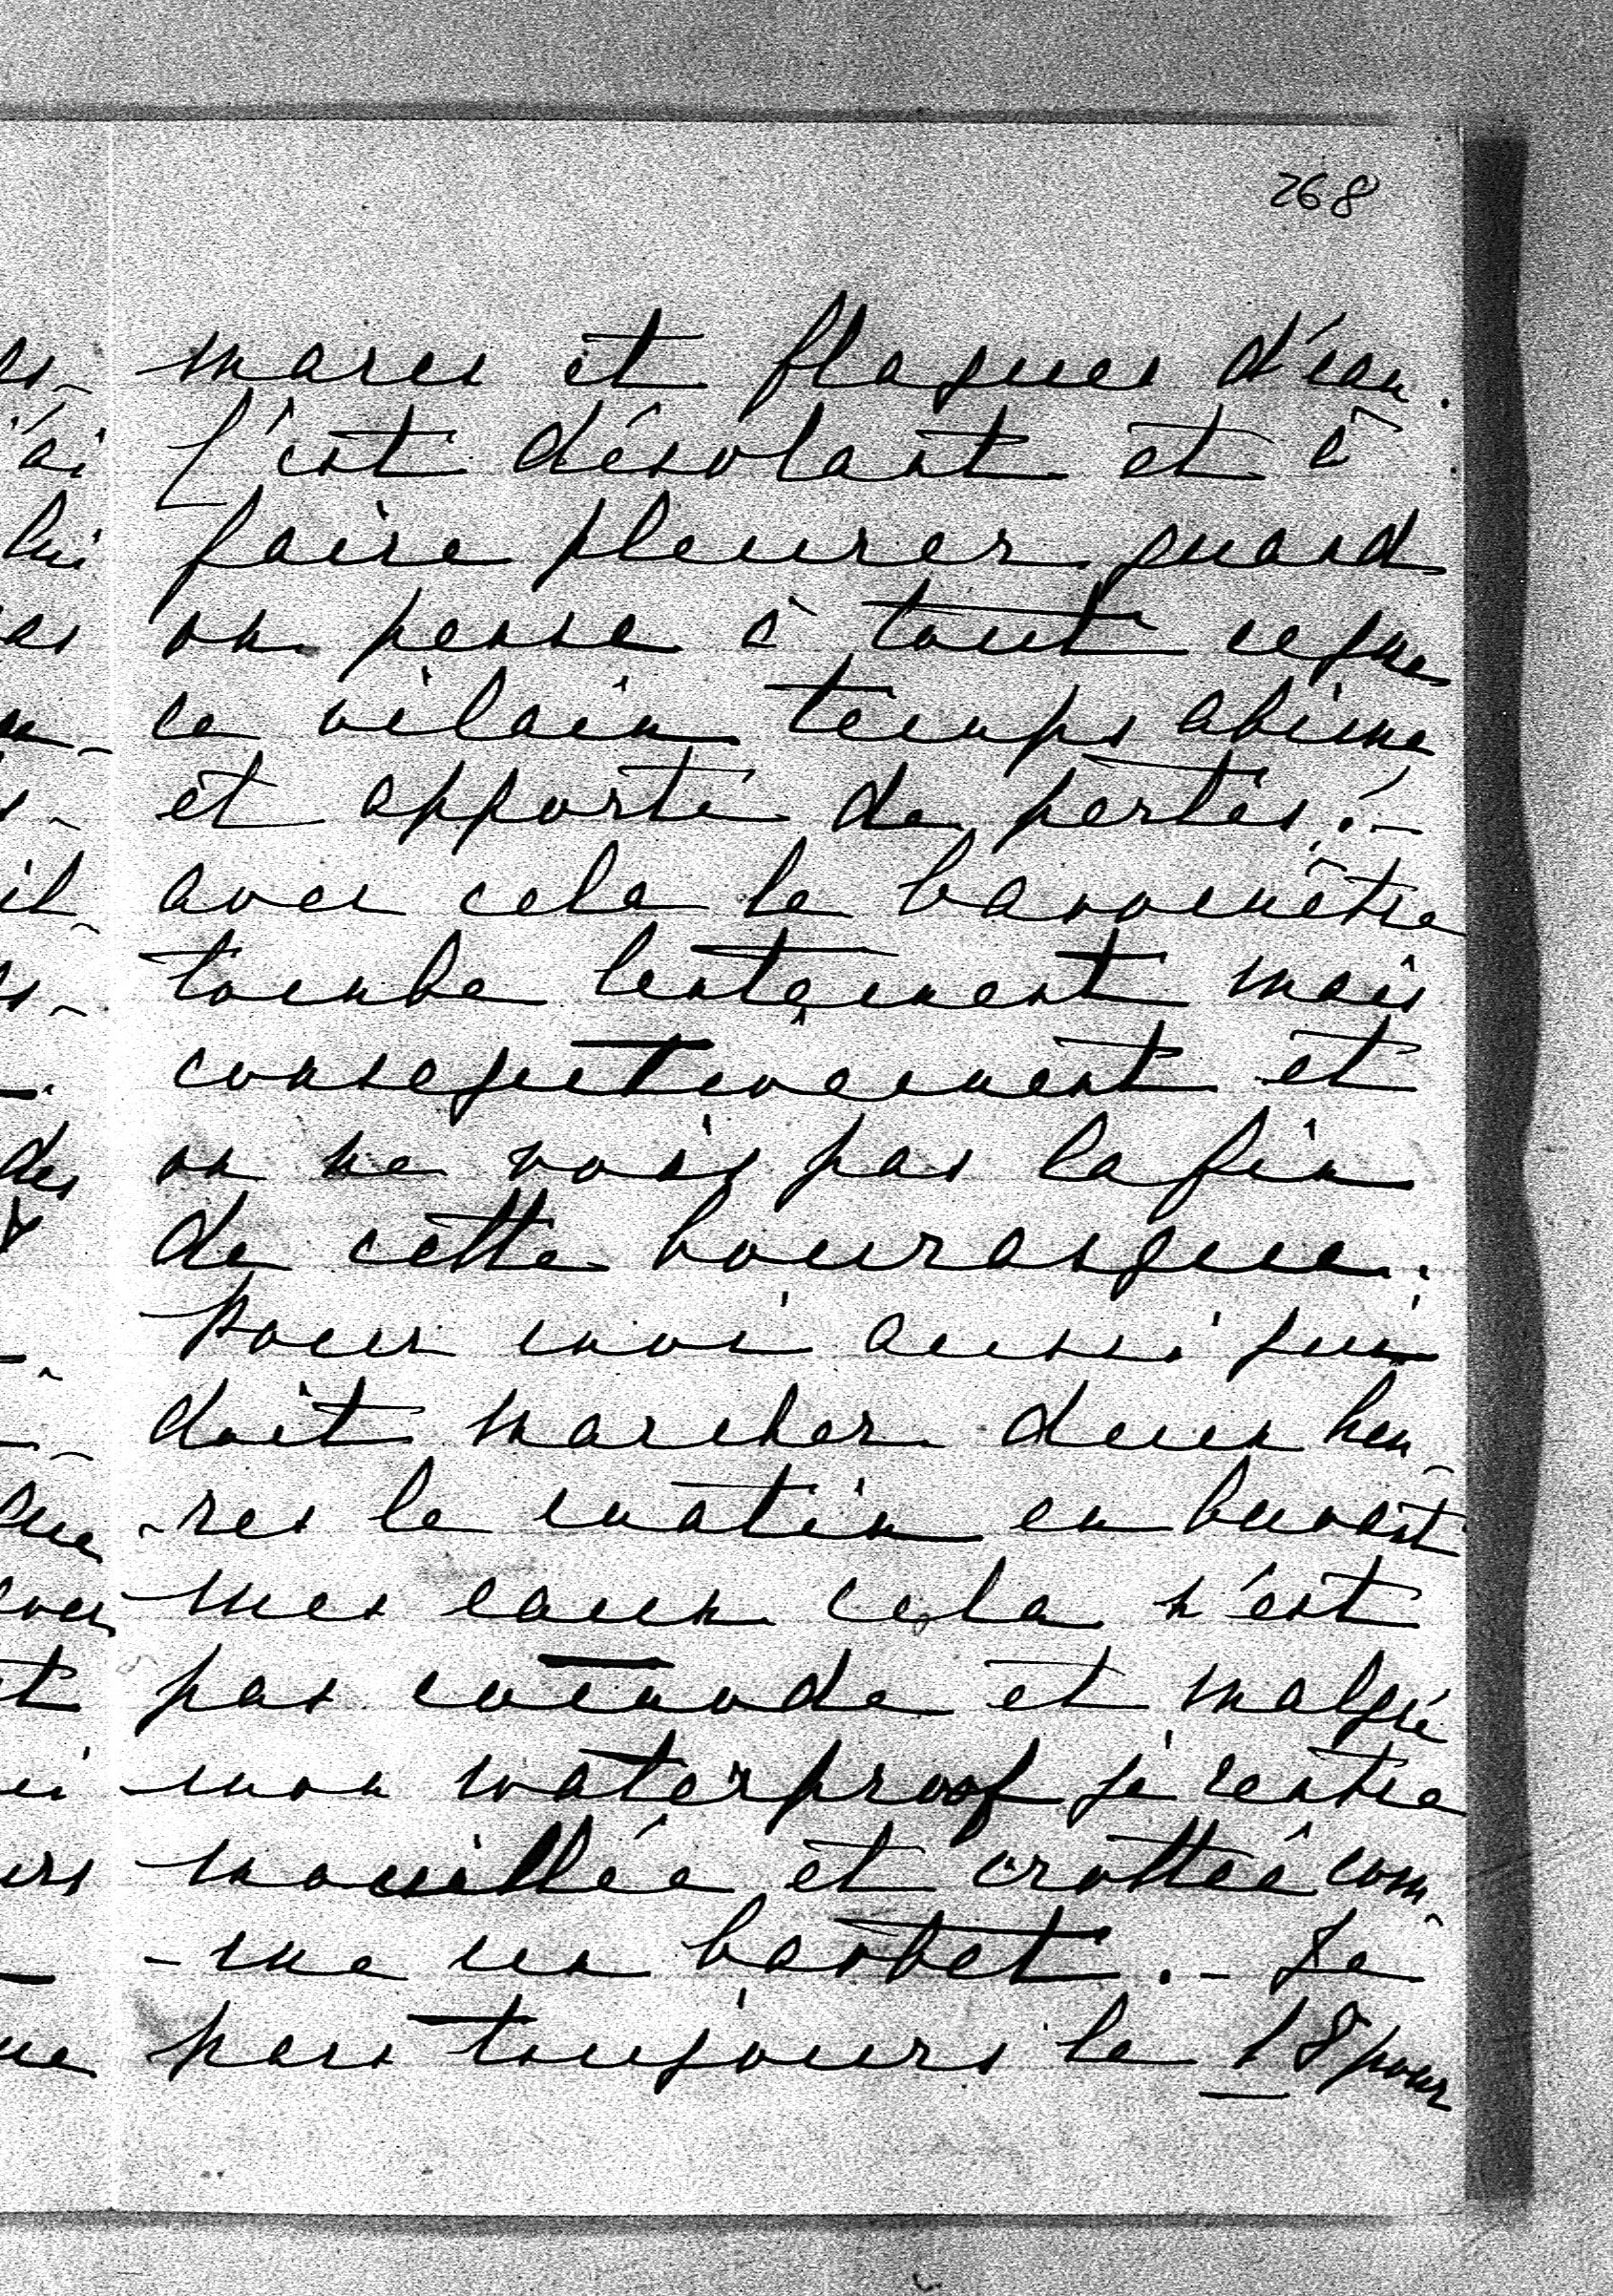 268
mares et flaques d'eau.
C'est désolant et à
faire pleurer quand
on pense à tout ce que
ce vilain temps abime
et apporte de pertes! –
avec cela le barromètre
tombe lentement mais
consequetivement et
on ne vois pas la fin
de cette bourasque.
Pour moi aussi qui
doit marcher deux heu-
-res le matin en buvant
mes eaux cela n'est
pas comode et malgré
mon waterproof je rentre
mouillée et crottée com-
-me un barbet. – Je
pars toujours le 18 pour